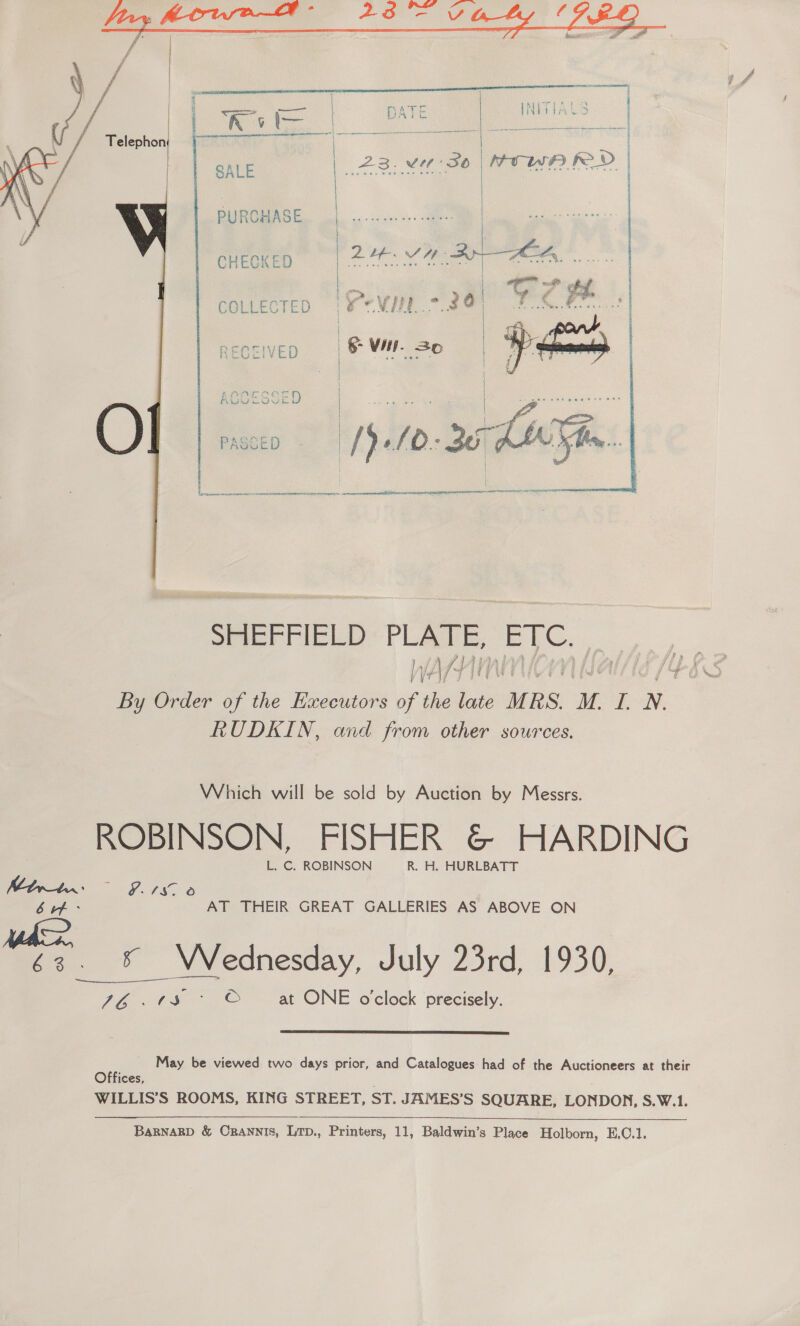 Mr Howard - 23rd July 1930
R & F DATE INITIALS
Telephon
SALE 23. VII. 30 HOWARD
W
PURCHASE
CHECKED 24. VII. 30
COLLECTED 8. VIII. 30
RECEIVED 8. VIII. 30
ACCESSED
Of
PASSED 15.10.30
SHEFFIELD PLATE, ETC.
By Order of the Executors of the late MRS. M. I. N.
RUDKIN, and from other sources.
Which will be sold by Auction by Messrs.
ROBINSON, FISHER & HARDING
L. C. ROBINSON R. H. HURLBATT
AT THEIR GREAT GALLERIES AS ABOVE ON
63. 8 Wednesday, July 23rd, 1930,
76.15.0 at ONE o'clock precisely.
May be viewed two days prior, and Catalogues had of the Auctioneers at their
Offices,
WILLIS'S ROOMS, KING STREET, ST. JAMES'S SQUARE, LONDON, S.W.1.
BARNARD & CRANNIS, LTD., Printers, 11, Baldwin's Place Holborn, E.C.1.